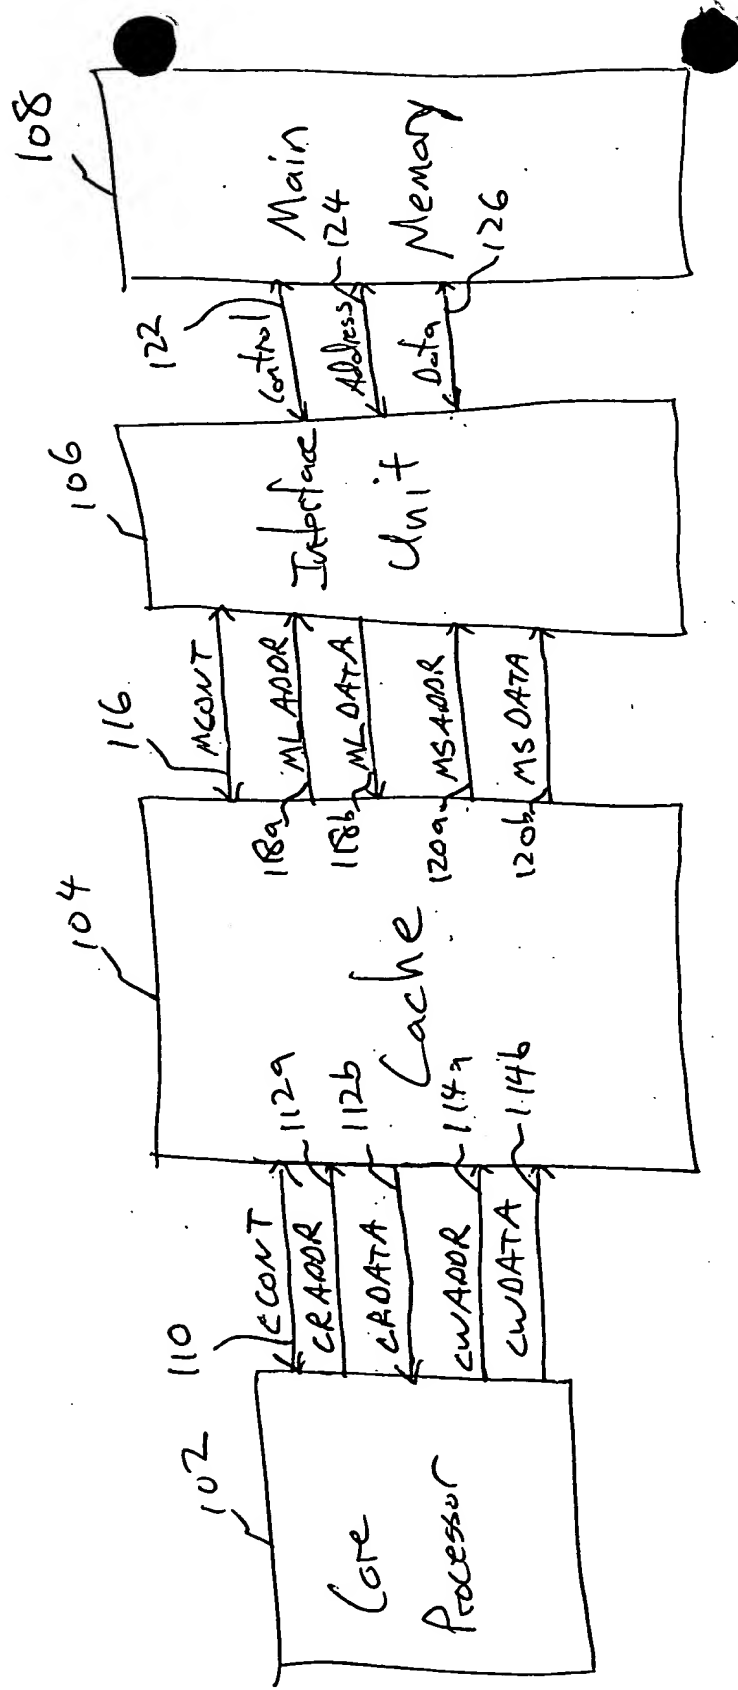 102
Core
Processor
110
CCONT
CRADDR
112a
CRDATA
112b
CWADDR
114a
CWDATA
114b
104
Cache
116
MCONT
118a
MLADDR
118b
MLDATA
120a
MSADDR
120b
MSDATA
106
Interface
Unit
122
Control
124
Address
Data
126
108
Main
Memory